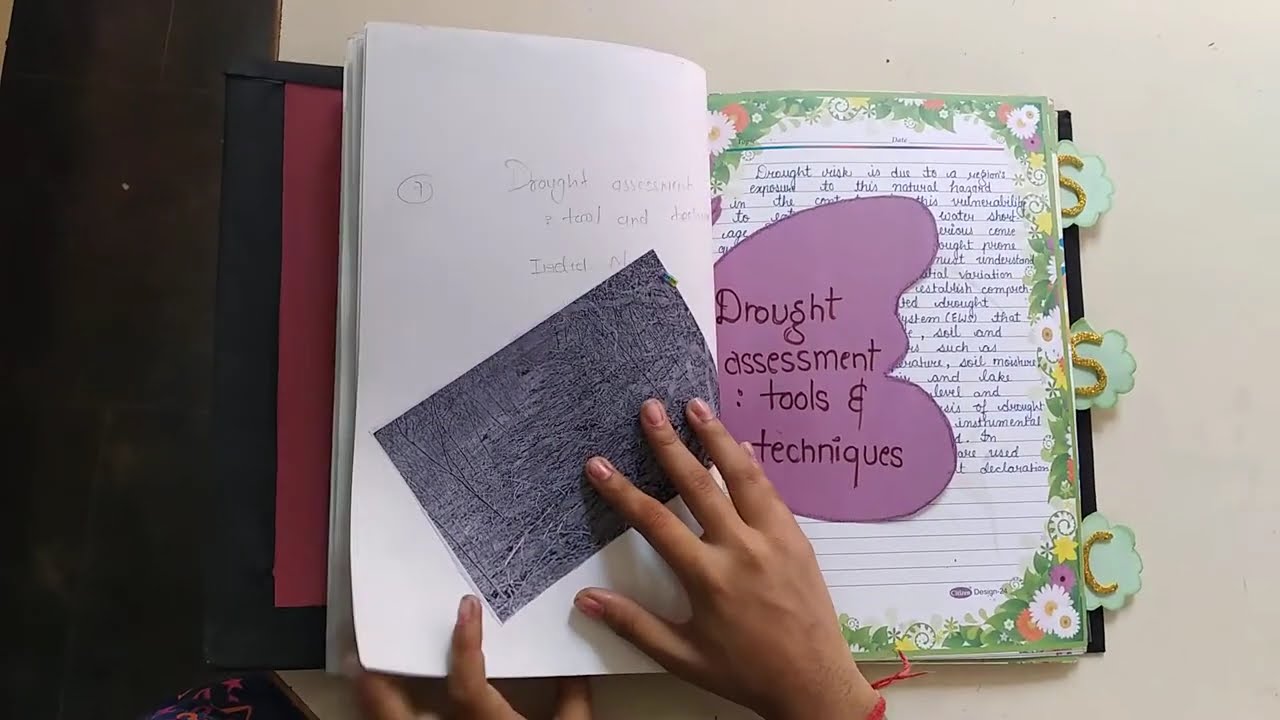 7
Drought assessment
: tool and
Date
Drought risk is due to a region's
exposure to this natural hazard
in the this vulnerability
to water short
age erious conse
ought prone
must understand
tial variation
establish compreh
ted drought
ystem (EWS) that
, soil and
rs such as
erature, soil moisture
and lake
level and
sis of drought
instrumental
d. In
are used
t declaration
Drought
assessment
: tools &
techniques
Citizen Design-24
S
S
C